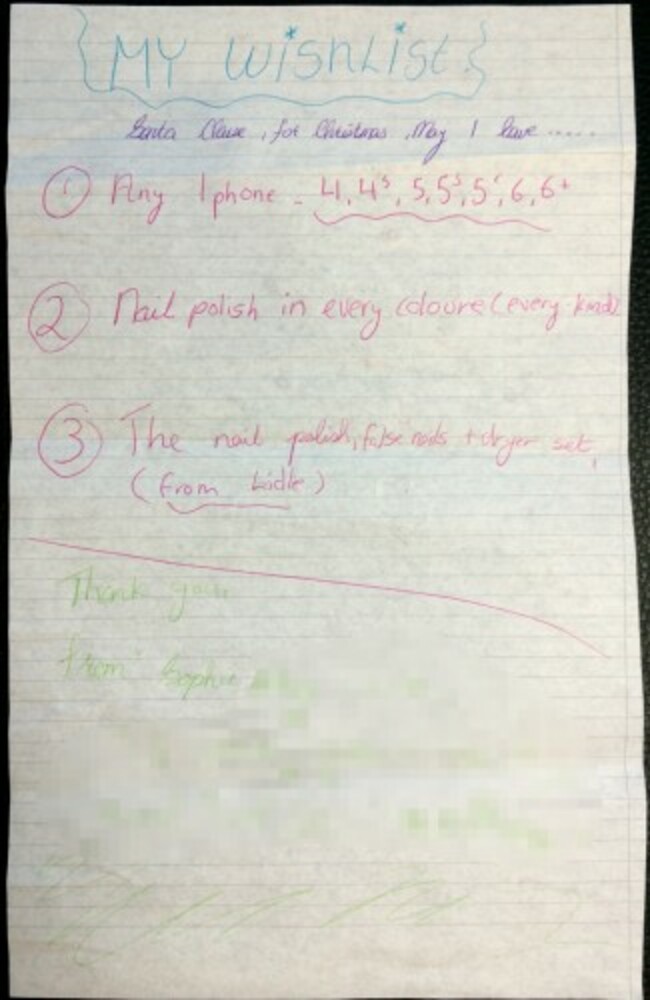 {MY WishList}
Santa Clause, for Christmas, May I have .....
① Any Iphone - 4, 4s, 5, 5s, 5c, 6, 6+
② Nail polish in every coloure (every kind)
③ The nail polish, false nails + dryer set,
(from Lidle)
Thank you
from Sophie